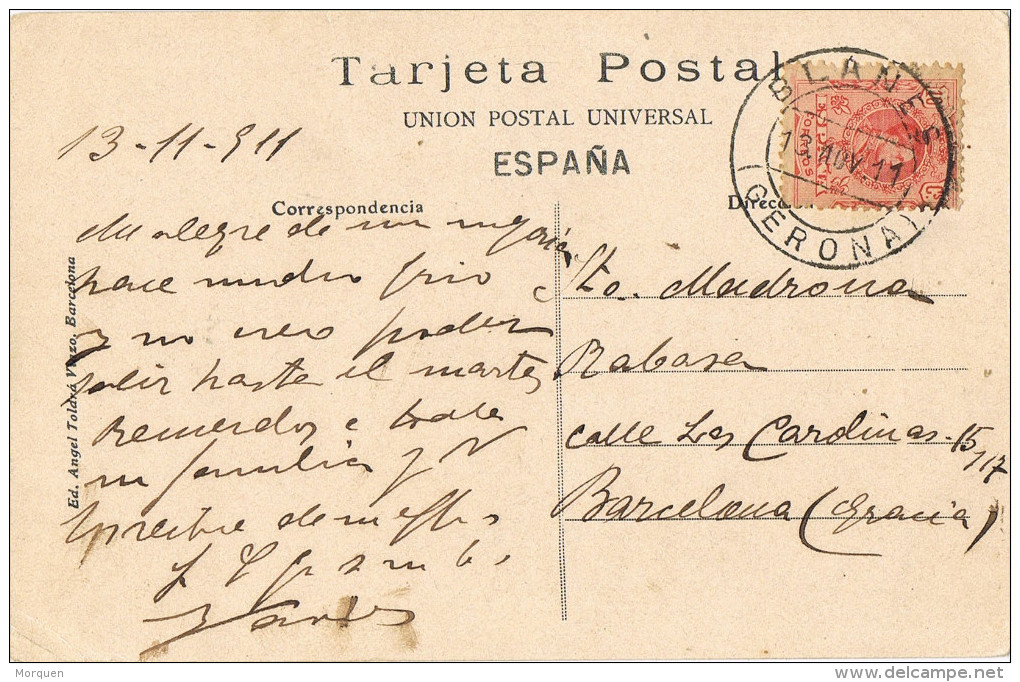 Tarjeta Postal
UNION POSTAL UNIVERSAL
ESPAÑA
13-11-911
Correspondencia
Me alegre de un mejoria
hace mucho frio
y no creo poder
salir hasta el martes
Recuerdos a toda
su familia y V
de
Direcc
BLANES
13 NOV. 11
(GERONA)
Sta. Madrona
Rabasa
calle Las Carolinas-15
y 17
Barcelona (Gracia)
Ed. Angel Toldrá Viazo. Barcelona
Morquen
www.delcampe.net